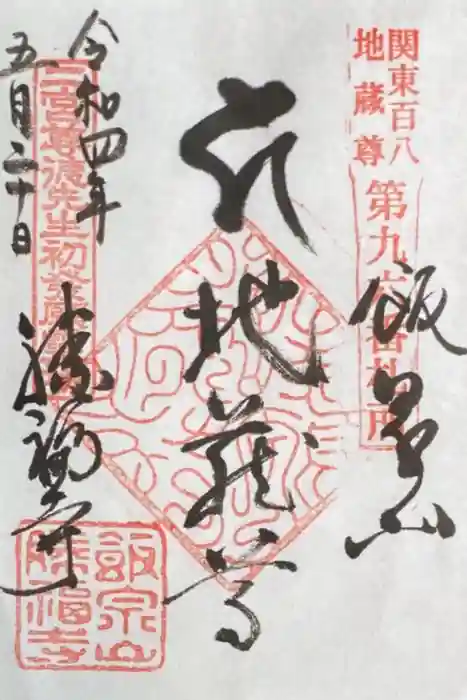 関東百八
地蔵尊
第九
番札所
飯泉山
地蔵尊
令和四年
五月二十日
二宮尊徳先生初発願
勝福寺
飯泉山
勝福寺